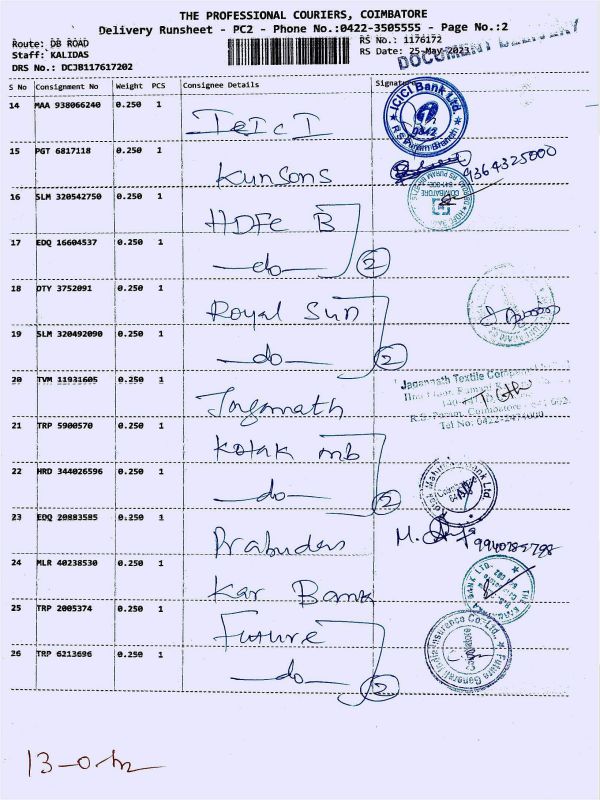 THE PROFESSIONAL COURIERS, COIMBATORE
Delivery Runsheet - PC2 - Phone No.:0422-3505555 - Page No.:2
Route: DB ROAD
Staff: KALIDAS
DRS No.: DCJB117617202
RS No.: 1176172
RS Date: 25-May-2023
DOCUMENT DELIVERY
S No Consignment No Weight PCS Consignee Details Signature
14 MAA 938066240 0.250 1 ICICI
ICICI Bank Ltd.
R.S. Puram Branch
15 PGT 6817118 0.250 1 Kunsons 9364325000
16 SLM 320542750 0.250 1 HDFC B
17 EDQ 16604537 0.250 1 -do- 2
18 DTY 3752091 0.250 1 Royal Sun
19 SLM 320492090 0.250 1 -do- 2
20 TVM 11931605 0.250 1 Jagannath
Jagannath Textile Company
R.S. Puram, Coimbatore - 641 002
Tel No: 0422-2474000
21 TRP 5900570 0.250 1 Kotak mb
22 HRD 344026596 0.250 1 -do- 2
Kotak Mahindra Bank Ltd
23 EDQ 20883585 0.250 1 Prabudas M. 9940785798
24 MLR 40238530 0.250 1 Kar Bank
25 TRP 2005374 0.250 1 Future
Future Generali India Insurance Co. Ltd.
26 TRP 6213696 0.250 1 -do- 2